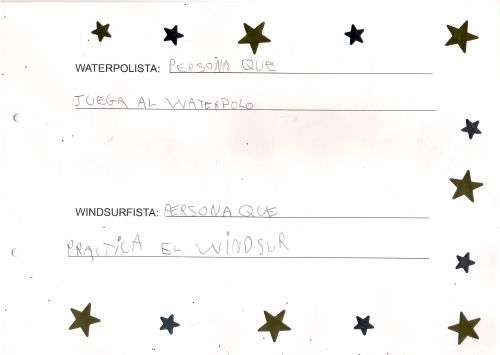 WATERPOLISTA: PERSONA QUE
JUEGA AL WATERPOLO
WINDSURFISTA: PERSONA QUE
PRACTICA EL WINDSUR